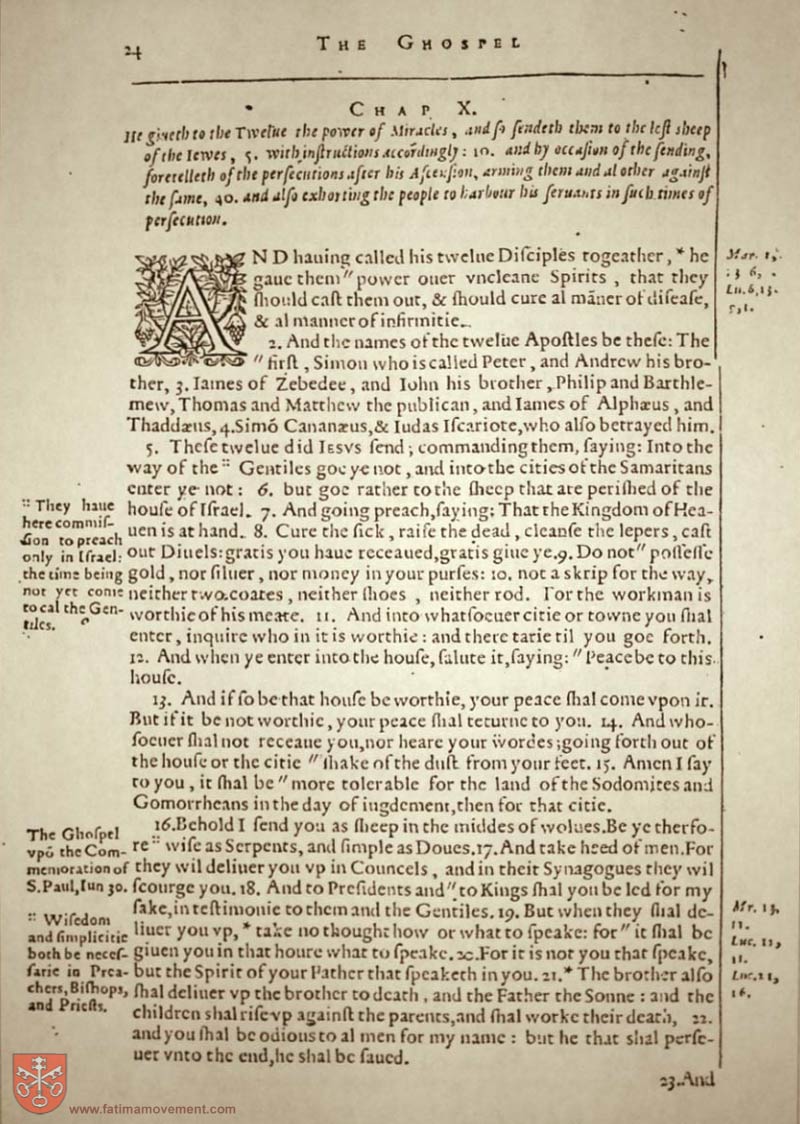 24
THE GHOSPEL
CHAP X.
He giueth to the Twelue the power of Miracles, and so sendeth them to the lost sheep
of the Iewes, 5. with instructions accordingly: 10. and by occasion of the sending,
foretelleth of the persecutions after his Ascension, arming them and al other against
the same, 40. and also exhorting the people to harbour his seruants in such times of
persecution.
AND hauing called his twelue Disciples togeather, * he
gaue them " power ouer vncleane Spirits, that they
should cast them out, & should cure al māner of disease,
& al manner of infirmitie.
2. And the names of the twelue Apostles be these: The
" first, Simon who is called Peter, and Andrew his bro-
ther, 3. Iames of Zebedee, and Iohn his brother, Philip and Barthle-
mew, Thomas and Matthew the publican, and Iames of Alphæus, and
Thaddæus, 4. Simō Cananæus, & Iudas Iscariote, who also betrayed him.
5. These twelue did IESVS send; commanding them, saying: Into the
way of the :: Gentiles goe ye not, and into the cities of the Samaritans
enter ye not: 6. but goe rather to the sheep that are perished of the
house of Israel. 7. And going preach, saying: That the Kingdom of Hea-
uen is at hand. 8. Cure the sick, raise the dead, cleanse the lepers, cast
out Diuels: gratis you haue receaued, gratis giue ye. 9. Do not " possesse
gold, nor siluer, nor money in your purses: 10. not a skrip for the way,
neither two coates, neither shoes, neither rod. For the workman is
worthie of his meate. 11. And into whatsoeuer citie or towne you shal
enter, inquire who in it is worthie: and there tarie til you goe forth.
12. And when ye enter into the house, salute it, saying: " Peace be to this
house.
13. And if so be that house be worthie, your peace shal come vpon it.
But if it be not worthie, your peace shal returne to you. 14. And who-
soeuer shal not receaue you, nor heare your wordes; going forth out of
the house or the citie " shake of the dust from your feet. 15. Amen I say
to you, it shal be " more tolerable for the land of the Sodomites and
Gomorrheans in the day of iugdement, then for that citie.
16. Behold I send you as sheep in the middes of wolues. Be ye therfo-
re :: wise as Serpents, and simple as Doues. 17. And take heed of men. For
they wil deliuer you vp in Councels, and in their Synagogues they wil
scourge you. 18. And to Presidents and " to Kings shal you be led for my
sake, in testimonie to them and the Gentiles. 19. But when they shal de-
liuer you vp, * take no thought how or what to speake: for " it shal be
giuen you in that houre what to speake. 20. For it is not you that speake,
but the Spirit of your Father that speaketh in you. 21. * The brother also
shal deliuer vp the brother to death, and the Father the Sonne: and the
children shal rise vp against the parents, and shal worke their death, 22.
and you shal be odious to al men for my name: but he that shal perse-
uer vnto the end, he shal be saued.
23. And
:: They haue
here commis-
sion to preach
only in Israel:
the time being
not yet come
to cal the Gen-
tiles.
The Ghospel
vpō the Com-
memoration of
S. Paul, Iun 30.
:: Wisedom
and simplicitie
both be neces-
sarie in Prea-
chers, Bishops,
and Priests.
Mar.
Lu. 6, 13.
Mr. 13,
11.
Luc. 12,
11.
Luc. 21,
16.
www.fatimamovement.com